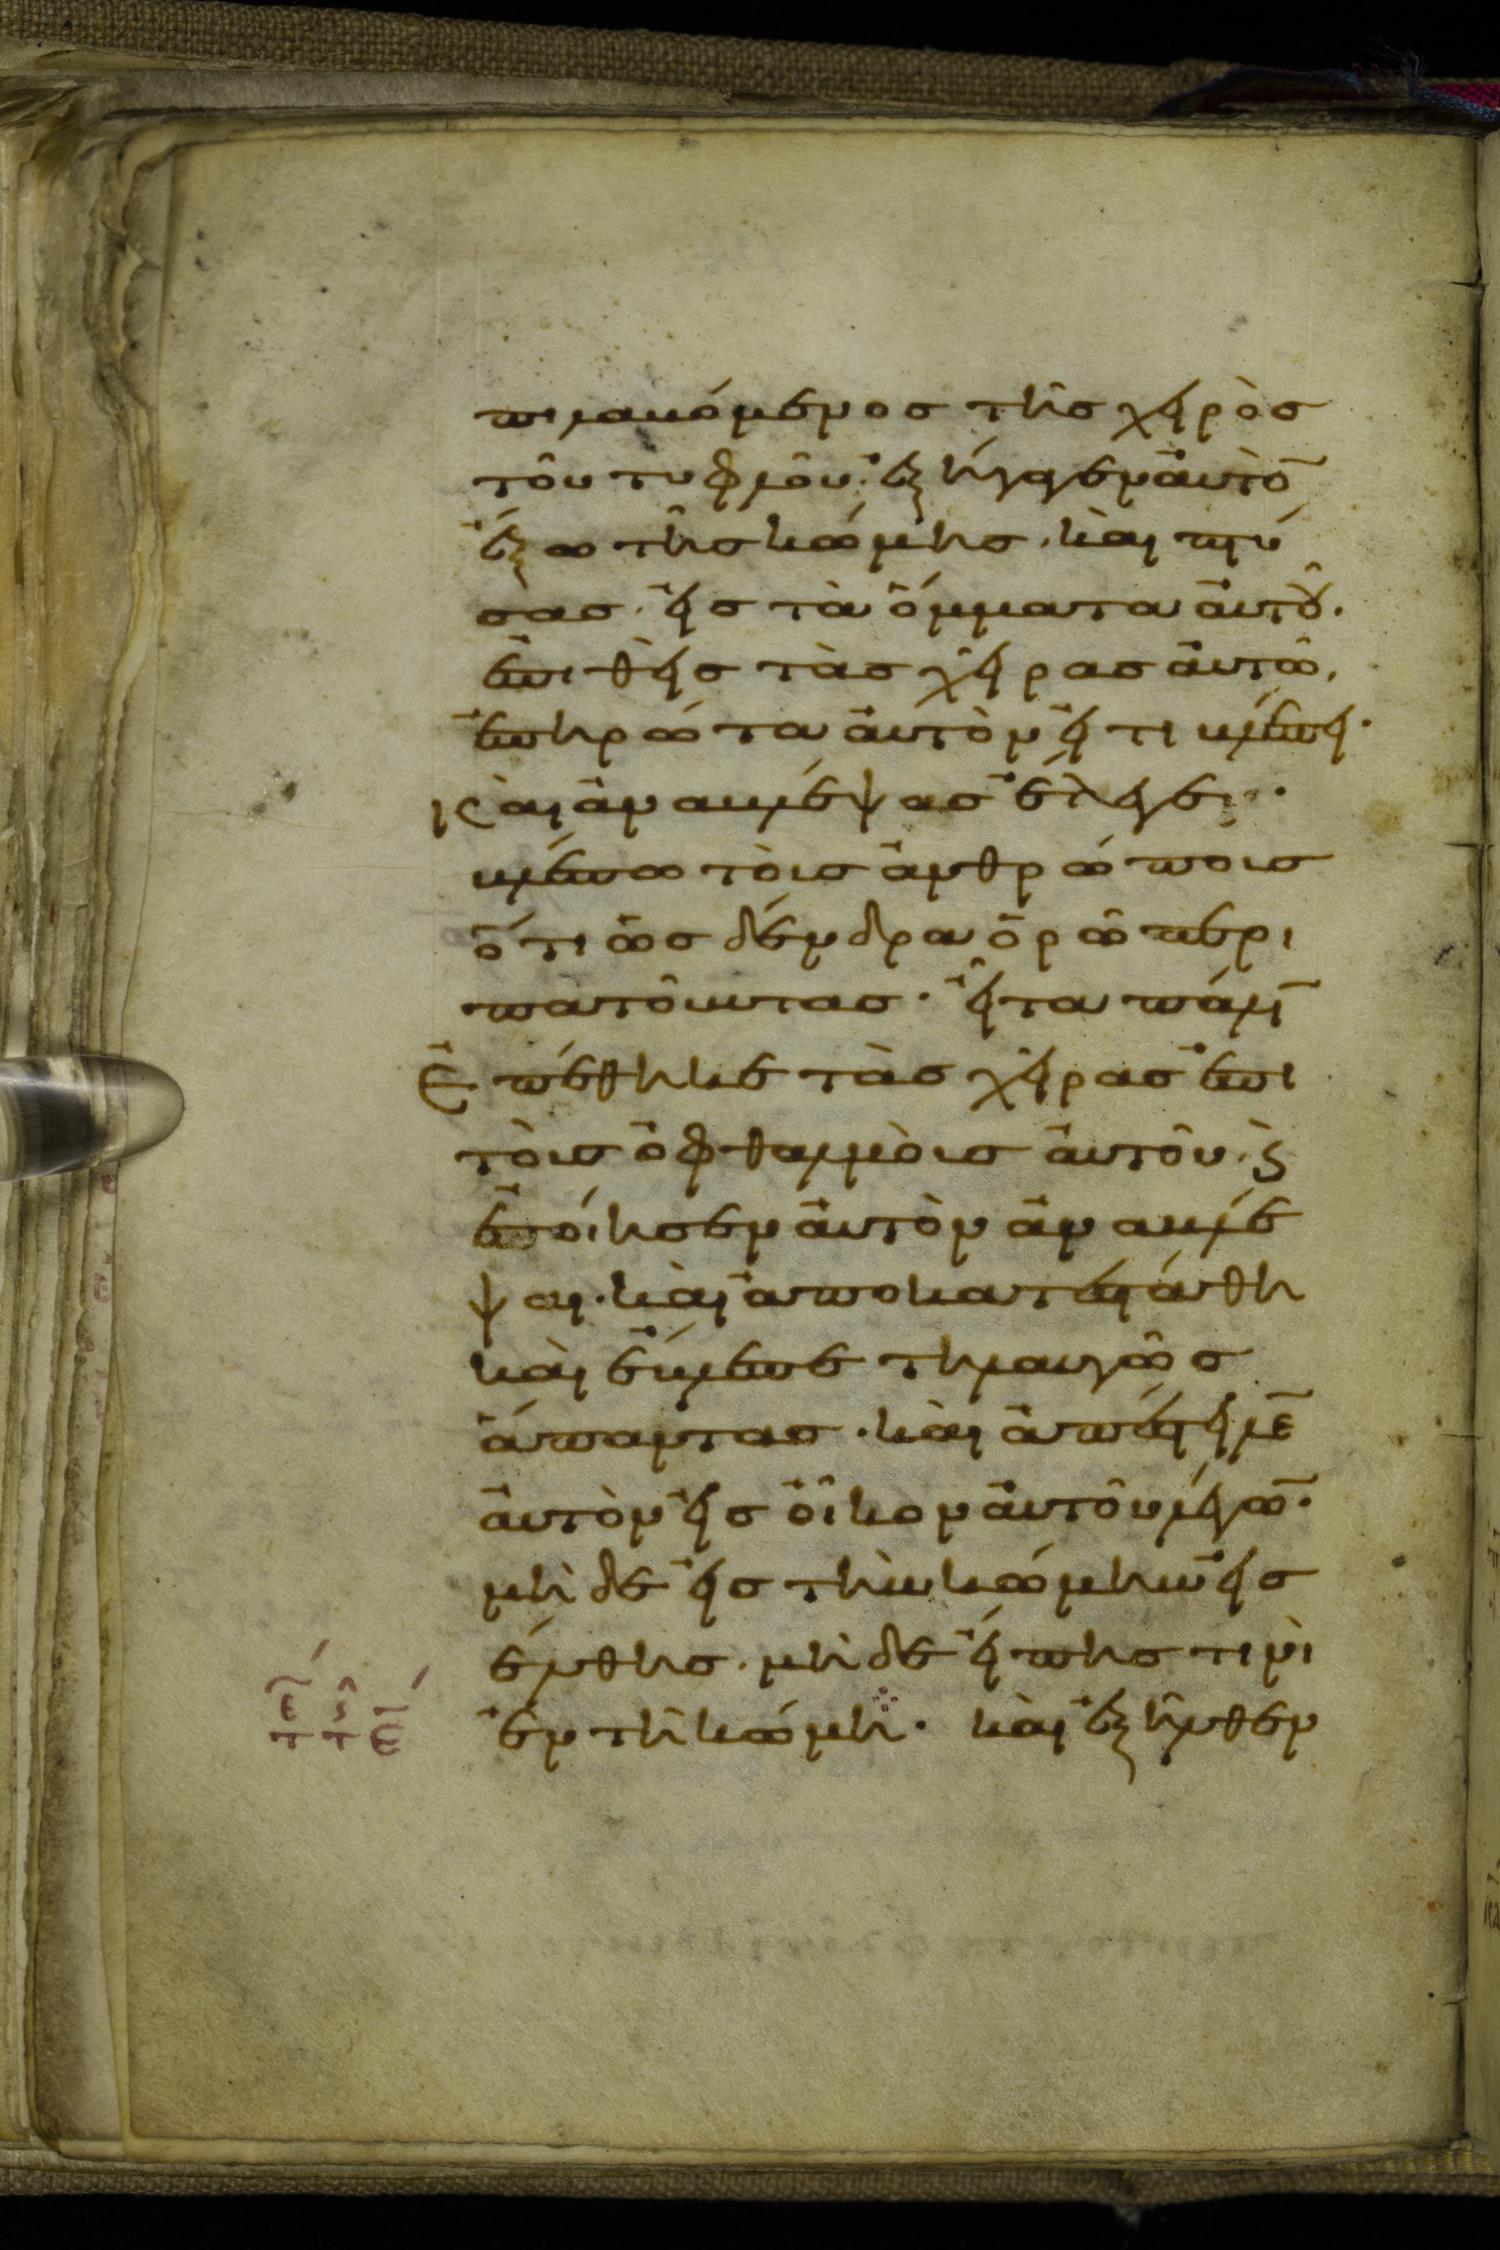 πιλαβόμενος τῆς χειρὸς
τοῦ τυφλοῦ· ἐξήγαγεν αὐτὸ̅
ἔξω τῆς κώμης, καὶ πτύ
σας εἰς τὰ ὄμματα αὐτοῦ.
ἐπιθεὶς τὰς χεῖρας αὐτῶ,
ἐπηρώτα αὐτὸν εἴ τι βλέπει·
καὶ ἀναβλέψας ἔλεγεν·
βλέπω τοὺς ἀνθρώπους
ὅτι ὡς δένδρα ὁρῶ περι
πατοῦντας· εἶτα πάλι̅
ἐπέθηκε τὰς χεῖρας ἐπὶ
τοὺς ὀφθαλμοὺς αὐτοῦ, ϗ
ἐποίησεν αὐτὸν ἀναβλέ
ψαι· καὶ ἀποκατεστάθη
καὶ ἔβλεπε τηλαυγῶς
ἅπαντας· καὶ ἀπέστειλε̅
αὐτὸν εἰς οἶκον αὐτοῦ λέγω̅·
μὴ δὲ εἰς τὴν κώμην εἰσ
έλθης. μὴ δὲ εἴπης τινὶ
ἐν τῆ κώμη· καὶ ἐξῆλθεν